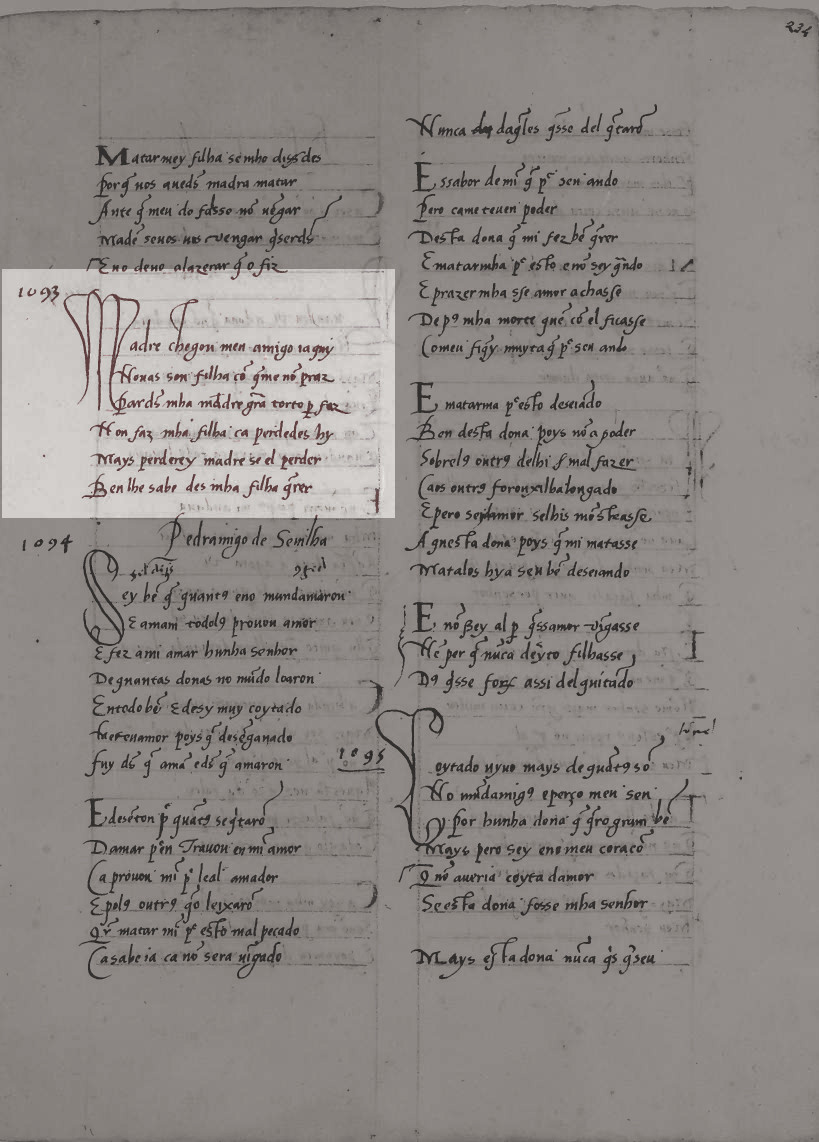 234
Matarmey filha semho dissedes
Porq̃ uos auedes madra matar
Ante q̃ meu do falsso nõ uẽgar
Madẽ senos uengar q̃serdes
Eno deuo alazerar q̃ o fiz
1093
Madre chegou meu amigo iaquj
Nouas son filha cõ q̃me nõ praz
Pards mha madre grã torto p̱ faz
Non faz mha filha ca perdedes hy
Mays perderey madre se el perder
Ben lhe sabedes mha filha q̃rer
Pedramigo de Seuilha
1094
Sey bẽ q̃ quant9 eno mundamaron
E amam todolꝯ prouou amor
E fez a mi amar hunha senhor
De quantas donas no mũdo loaron
En todo bẽ E desy muy coytado
me tenamor poys q̃ deseganado
fuy dꝯ q̃ amã edꝯ q̃ amaron
Damar Trauou en mi amor
Ca prouou mi leal amador
E polꝯ outrꝯ q̃o leixarõ
Qr matar mi pr esto mal pecado
Ca sabe ia ca nõ sera uĩgado
Nunca daq̃les q̃sse del q̃tarõ
E ssabor de mi q̃ pr seu ando
Pero cameteuen poder
Desta dona q̃ mi fez bẽ q̃rer
E matarmha pr esto enõ sey q̃ndo
E prazermha sse amor achasse
De pꝯ mha morte quẽ cõ el ficasse
Comeu fiq̃y muyta q̃ pr seu ando
E matarma pr esto deseiãdo
Ben desta dona poys nõ a poder
Sobrelꝯ outrꝯ delhi mal fazer
Caos outrꝯ
E pero amor selhis mõstrasse
Aquesta dona poys q̃ mi matasse
Matalos hya seu bẽ deseiando
E nõ sey al p̱ q̃ssamor uĩgasse
Nẽ per q̃ nũca dẽyto filhasse
Dꝯ q̃sse assi del quitado
1095
Coytado uyuo mays de quãtꝯ sõ
No mũdamigꝯ e perço meu sen
Por hunha dona q̃ q̃ro gram bẽ
Mays pero sey eno meu coraçõ
Q̃ nõ aueria coyta damor
Se esta dona fosse mha senhor
Mays esta dona nũca q̃s q̃seu